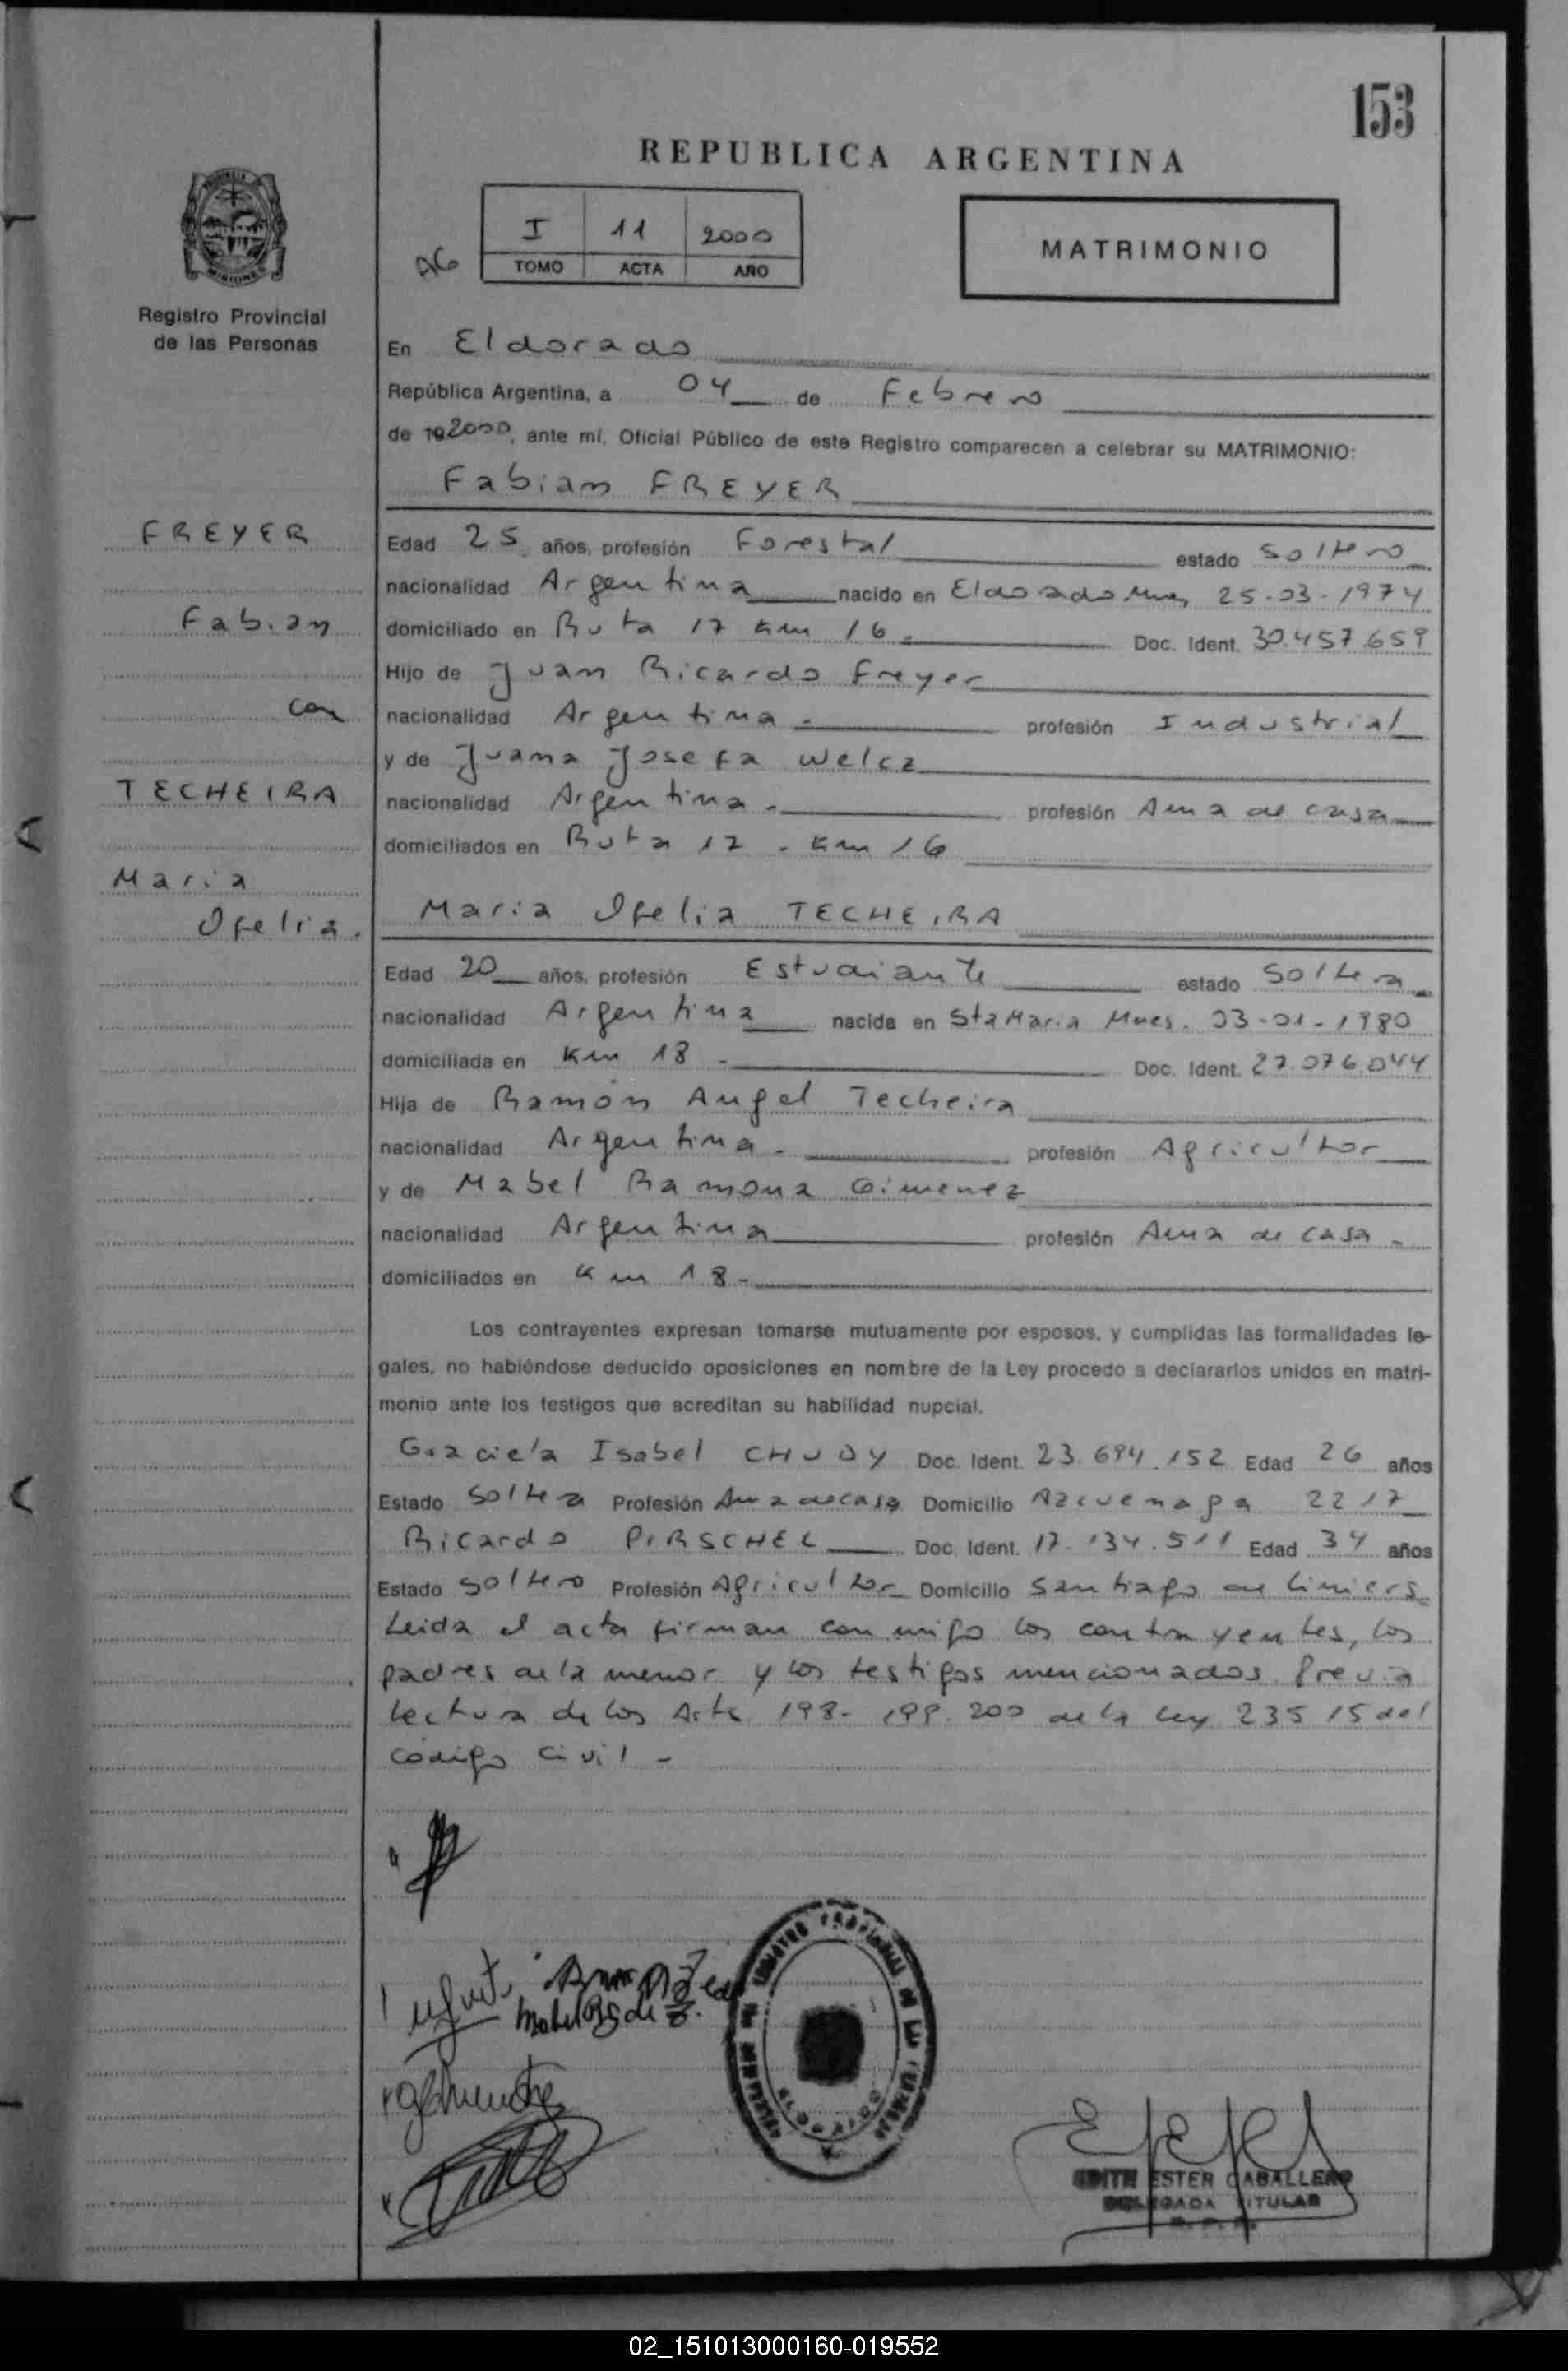 153
REPUBLICA ARGENTINA
I 11 2000
TOMO ACTA AÑO
MATRIMONIO
PROVINCIA
MISIONES
Registro Provincial
de las Personas
En Eldorado
República Argentina, a 04 de Febrero
de 192000, ante mí, Oficial Público de este Registro comparecen a celebrar su MATRIMONIO:
Fabian FREYER
FREYER
Fabian
con
TECHEIRA
Maria
Ofelia.
Edad 25 años, profesión Forestal estado soltero
nacionalidad Argentina nacido en Eldorado Mnes 25-03-1974
domiciliado en Ruta 17 Km 16. Doc. Ident. 30.457.659
Hijo de Juan Ricardo Freyer
nacionalidad Argentina - profesión Industrial
y de Juana Josefa Welcz
nacionalidad Argentina - profesión Ama de casa
domiciliados en Ruta 17 - Km 16
Maria Ofelia TECHEIRA
Edad 20 años, profesión Estudiante estado Soltera
nacionalidad Argentina nacida en Sta Maria Mnes. 03-01-1980
domiciliada en Km 18 - Doc. Ident. 27.076.044
Hija de Ramón Angel Techeira
nacionalidad Argentina - profesión Agricultor
y de Mabel Ramona Gimenez
nacionalidad Argentina profesión Ama de casa -
domiciliados en Km 18 -
Los contrayentes expresan tomarse mutuamente por esposos, y cumplidas las formalidades le-
gales, no habiéndose deducido oposiciones en nombre de la Ley procedo a declararlos unidos en matri-
monio ante los testigos que acreditan su habilidad nupcial.
Graciela Isabel CHUDY Doc. Ident. 23.694.152 Edad 26 años
Estado Soltera Profesión Ama de casa Domicilio Azcuenaga 2217
Ricardo PIRSCHEL Doc. Ident. 17.134.511 Edad 34 años
Estado soltero Profesión Agricultor Domicilio Santiago de Liniers
Leida el acta firman conmigo los contrayentes, los
padres de la menor y los testigos mencionados. Previa
lectura de los Arts 198- 199. 200 de la ley 23515 del
codigo Civil -
ELDORADO
EDITH ESTER CABALLERO
DELEGADA TITULAR
02_151013000160-019552